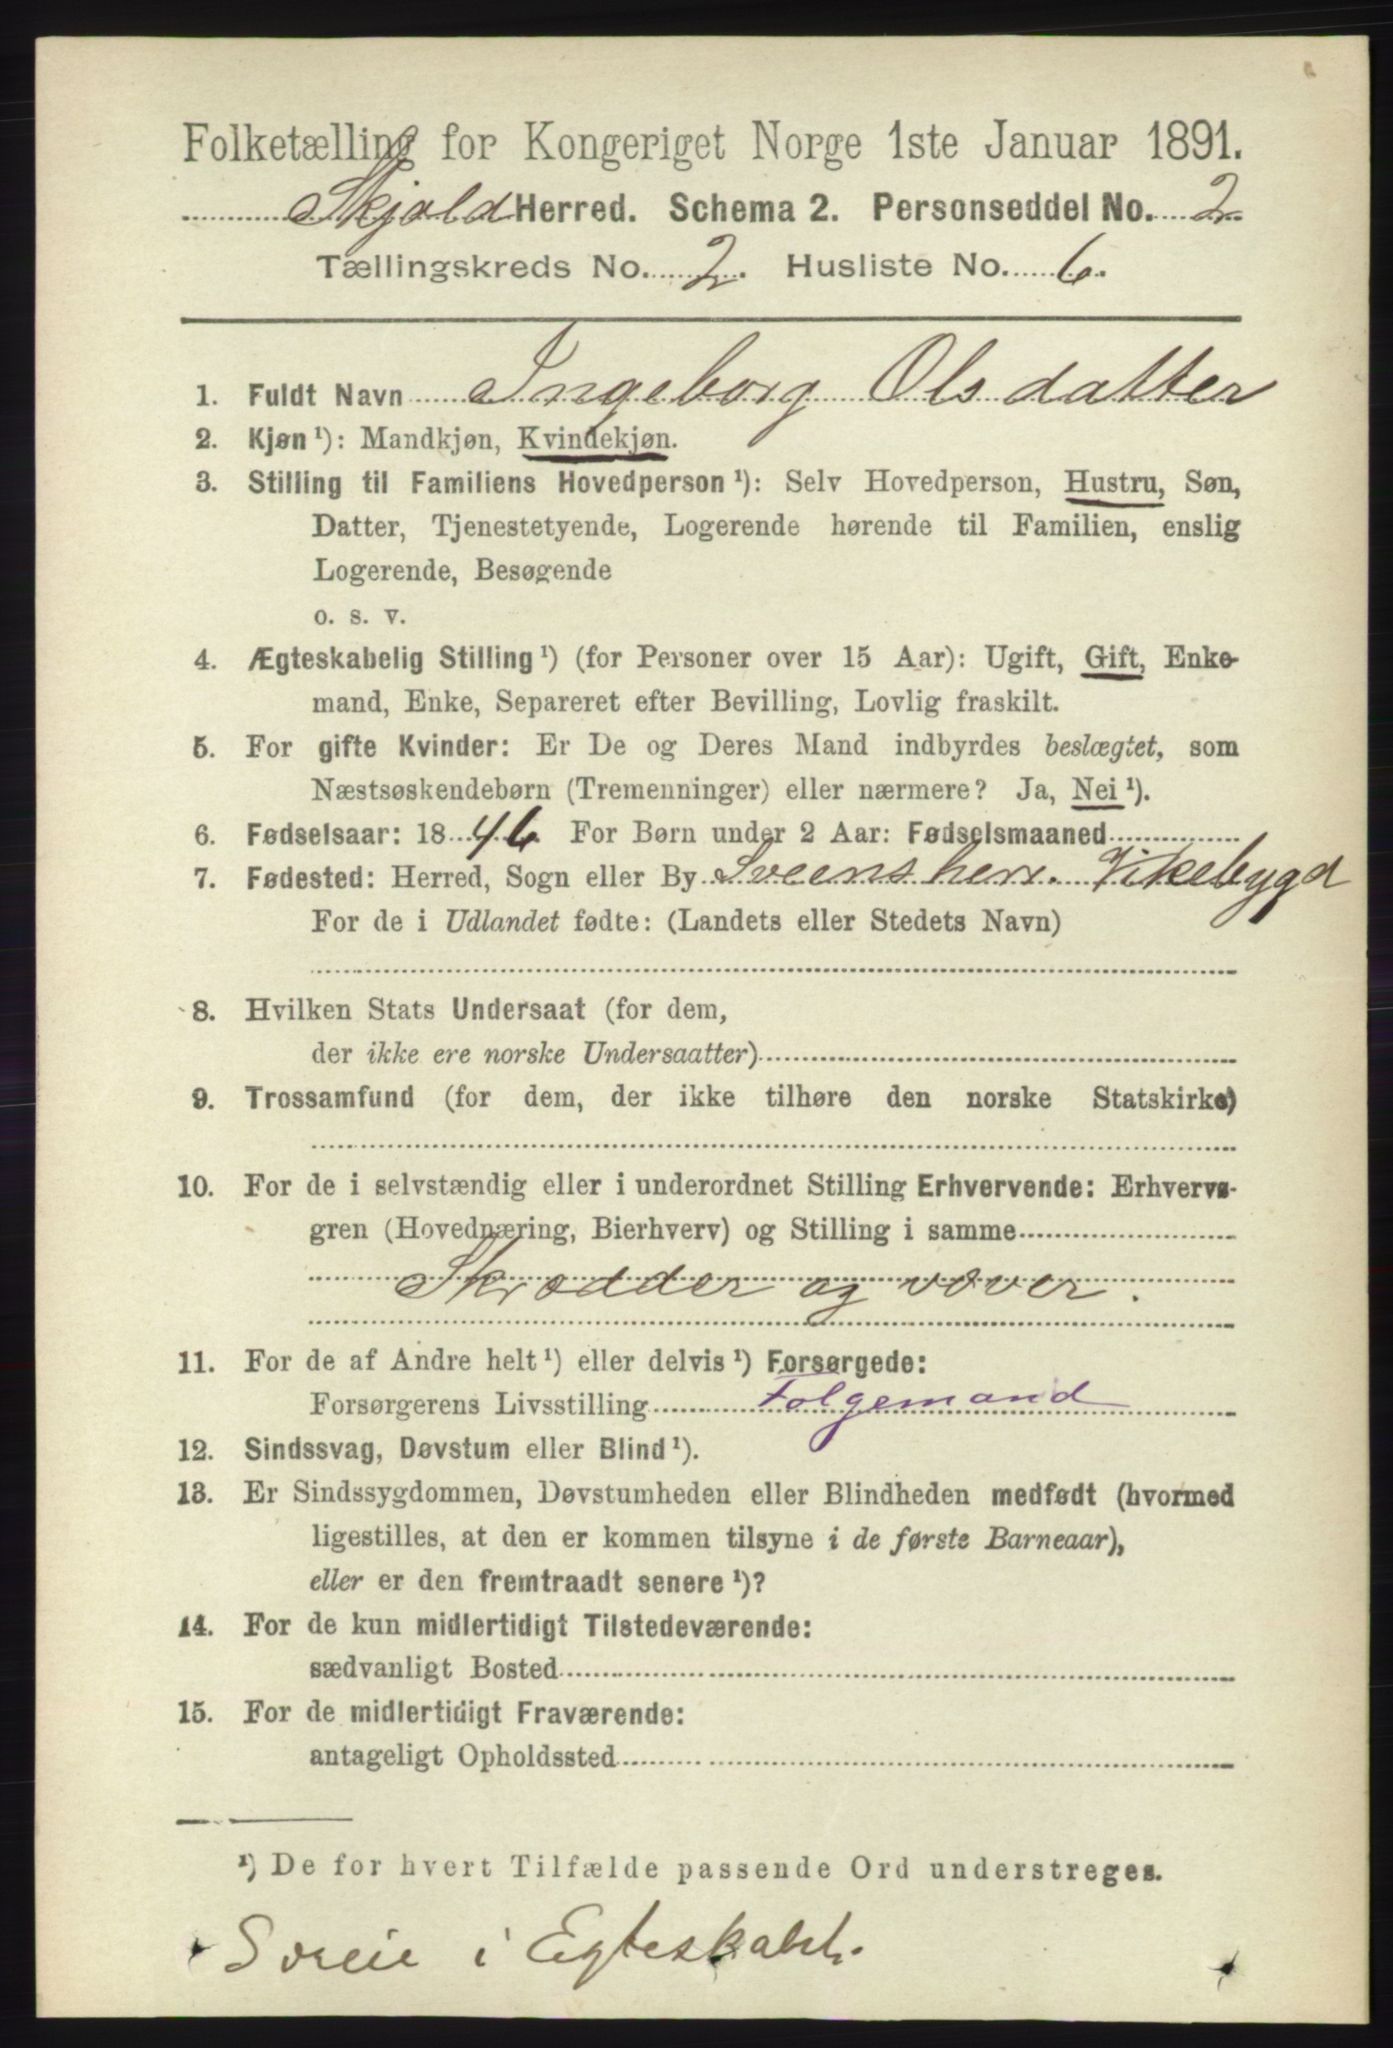 Folketælling for Kongeriget Norge 1ste Januar 1891.
Skjold Herred. Schema 2. Personseddel No. 2
Tællingskreds No. 2. Husliste No. 6.
1. Fuldt Navn Ingeborg Olsdatter
2. Kjøn ¹): Mandkjøn, Kvindekjøn.
3. Stilling til Familiens Hovedperson ¹): Selv Hovedperson, Hustru, Søn,
Datter, Tjenestetyende, Logerende hørende til Familien, enslig
Logerende, Besøgende
o. s. v.
4. Ægteskabelig Stilling ¹) (for Personer over 15 Aar): Ugift, Gift, Enke-
mand, Enke, Separeret efter Bevilling, Lovlig fraskilt.
5. For gifte Kvinder: Er De og Deres Mand indbyrdes beslægtet, som
Næstsøskendebørn (Tremenninger) eller nærmere? Ja, Nei ¹).
6. Fødselsaar: 1846 For Børn under 2 Aar: Fødselsmaaned
7. Fødested: Herred, Sogn eller By Sveens herr. Vikebygd
For de i Udlandet fødte: (Landets eller Stedets Navn)
8. Hvilken Stats Undersaat (for dem,
der ikke ere norske Undersaatter)
9. Trossamfund (for dem, der ikke tilhøre den norske Statskirke)
10. For de i selvstændig eller i underordnet Stilling Erhvervende: Erhvervs-
gren (Hovednæring, Bierhverv) og Stilling i samme
Skrædder og væver.
11. For de af Andre helt ¹) eller delvis ¹) Forsørgede:
Forsørgerens Livsstilling Folgemand
12. Sindssvag, Døvstum eller Blind ¹).
13. Er Sindssygdommen, Døvstumheden eller Blindheden medfødt (hvormed
ligestilles, at den er kommen tilsyne i de første Barneaar),
eller er den fremtraadt senere ¹)?
14. For de kun midlertidigt Tilstedeværende:
sædvanligt Bosted
15. For de midlertidigt Fraværende:
antageligt Opholdssted
¹) De for hvert Tilfælde passende Ord understreges.
i Egteskabet.